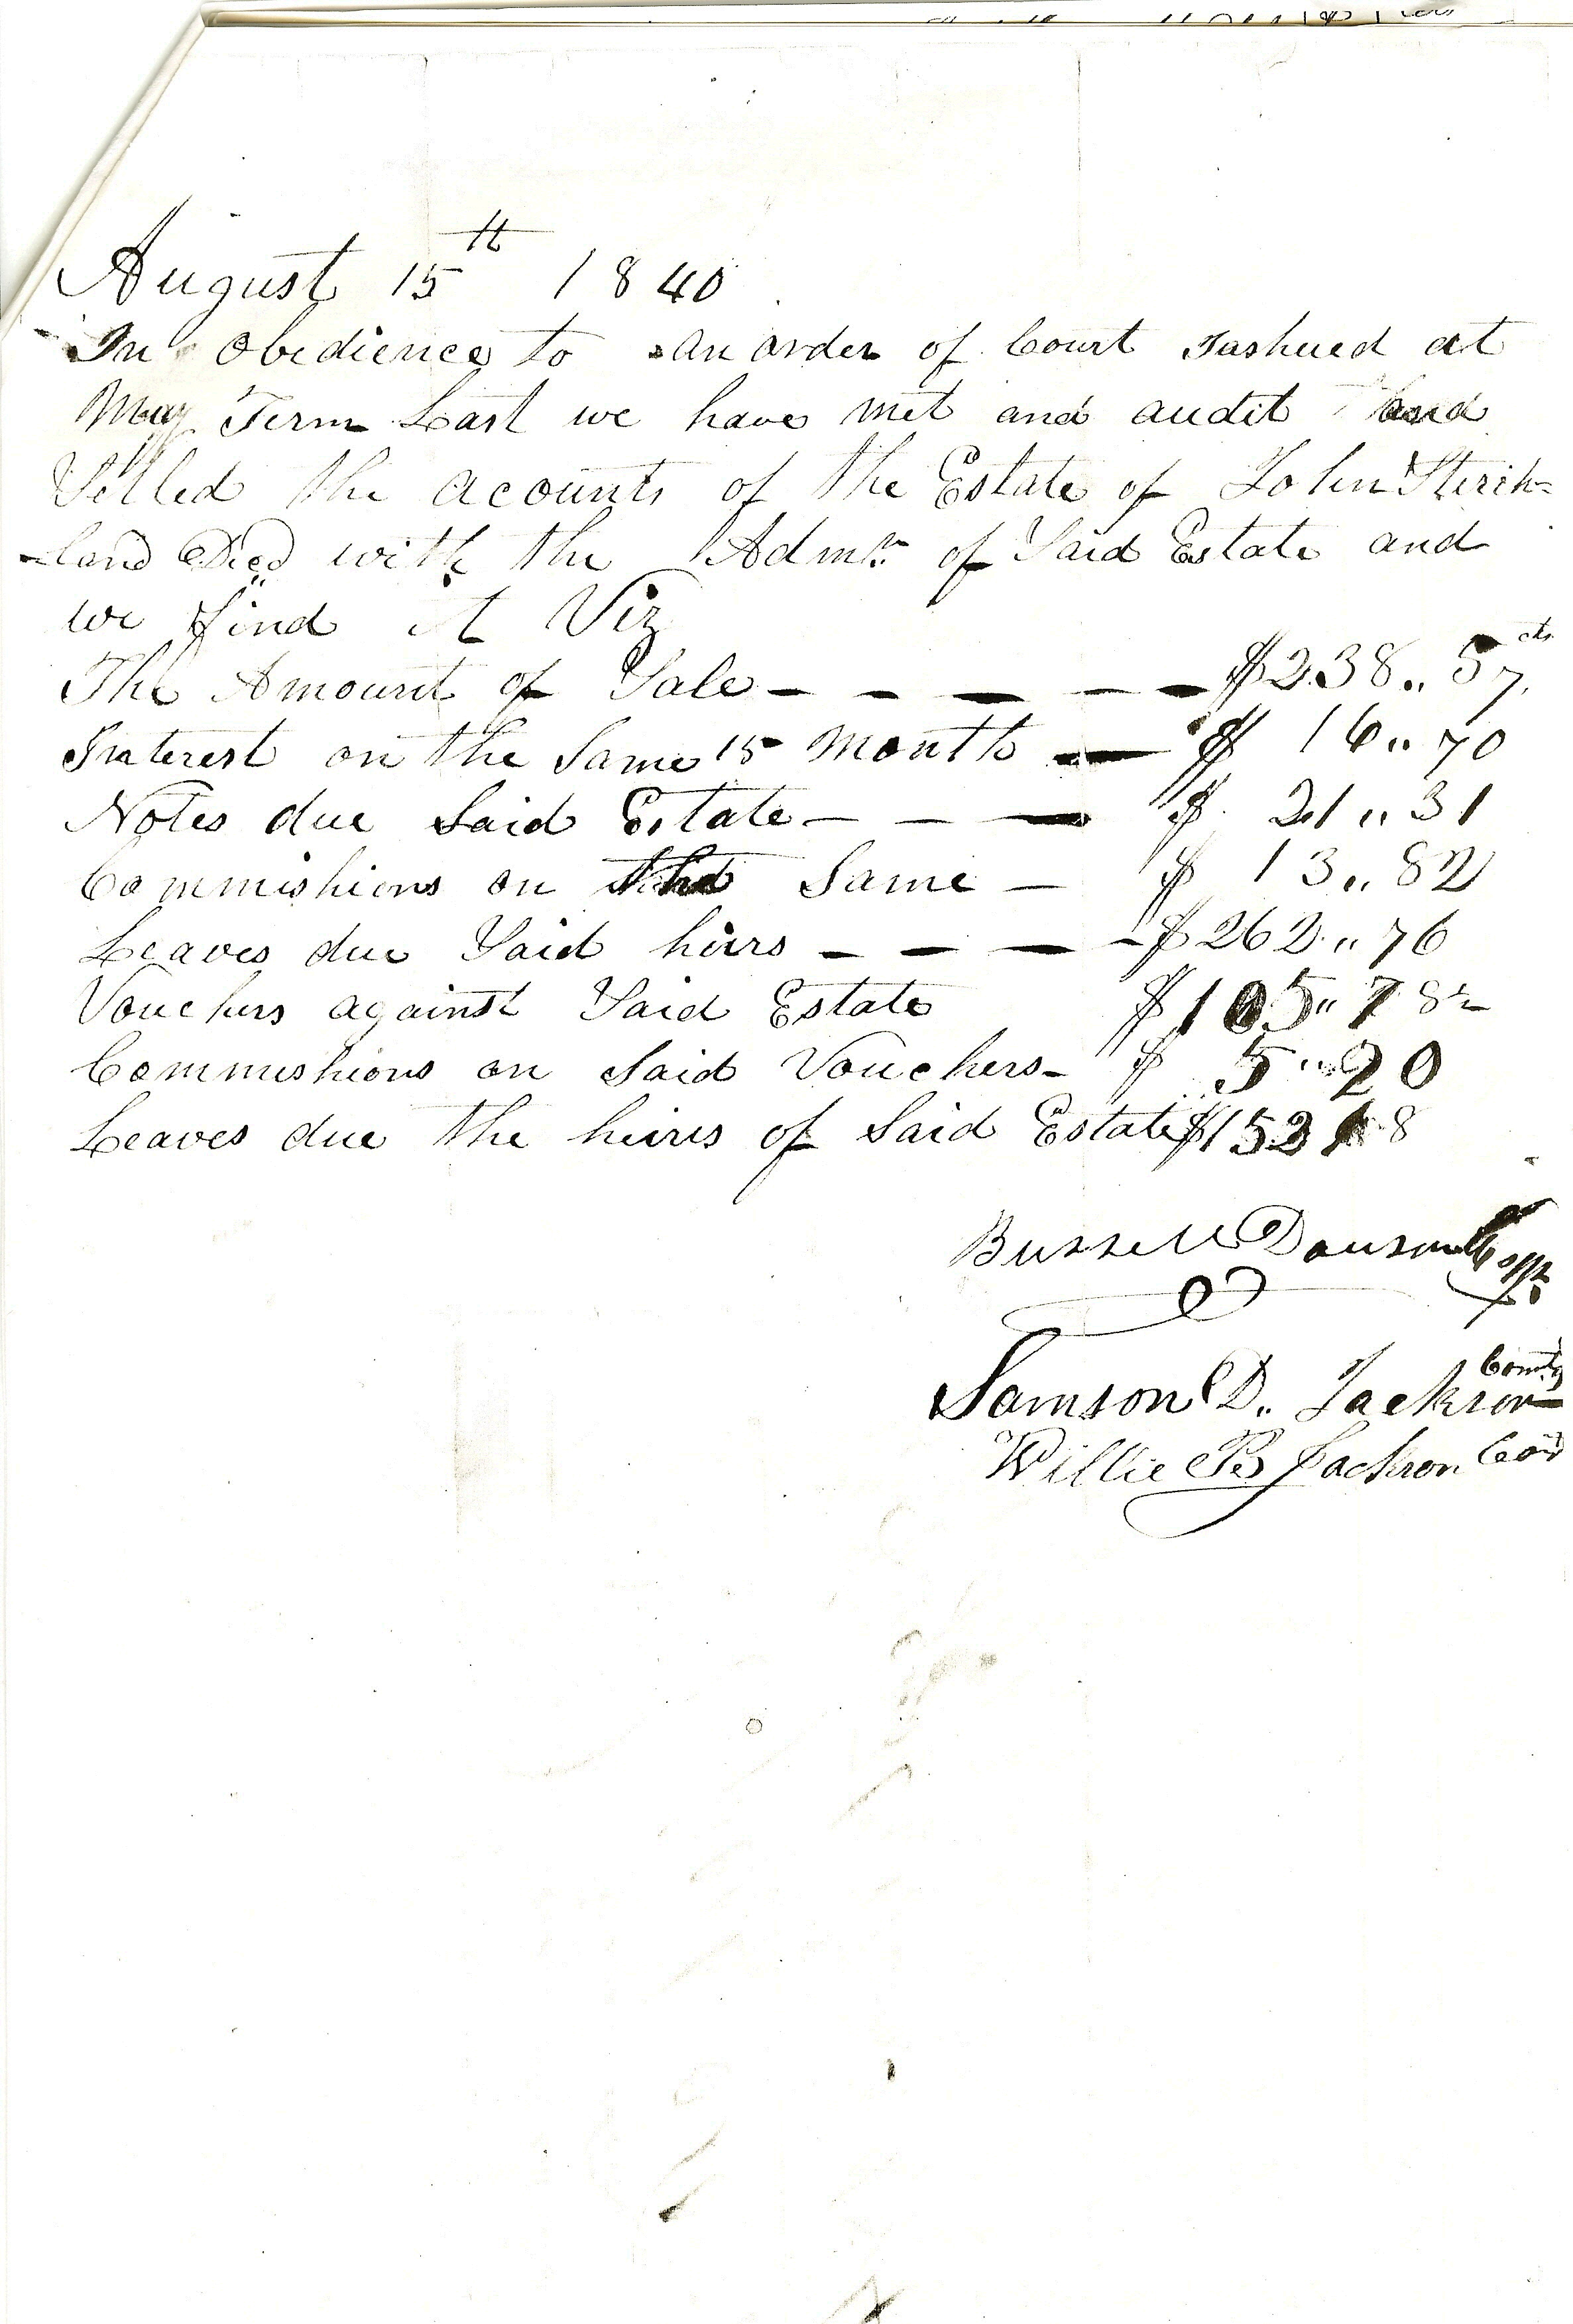 August 15th 1840
In obedience to an order of Court Isshued at
May Term Last we have met and audit and
Setled the acounts of the Estate of John Strick=
-land Decd with the Admr of Said Estate and
we find it Viz
The Amount of Sale - - - - - $238.. 57 cts
Interest on the Same 15 months — $ 16.. 70
Notes due Said Estate - - - $ 21 .. 31
Commishions on the Same - $ 13.. 82
Leaves due Said heirs - - - - $ 262.. 76
Vouchers against Said Estate $ 105.. 78
Commishions on Said Vouchers - $ 5 .. 20
Leaves due the heirs of Said Estate $ 15
Samson D. Jackson
Willie B Jackson